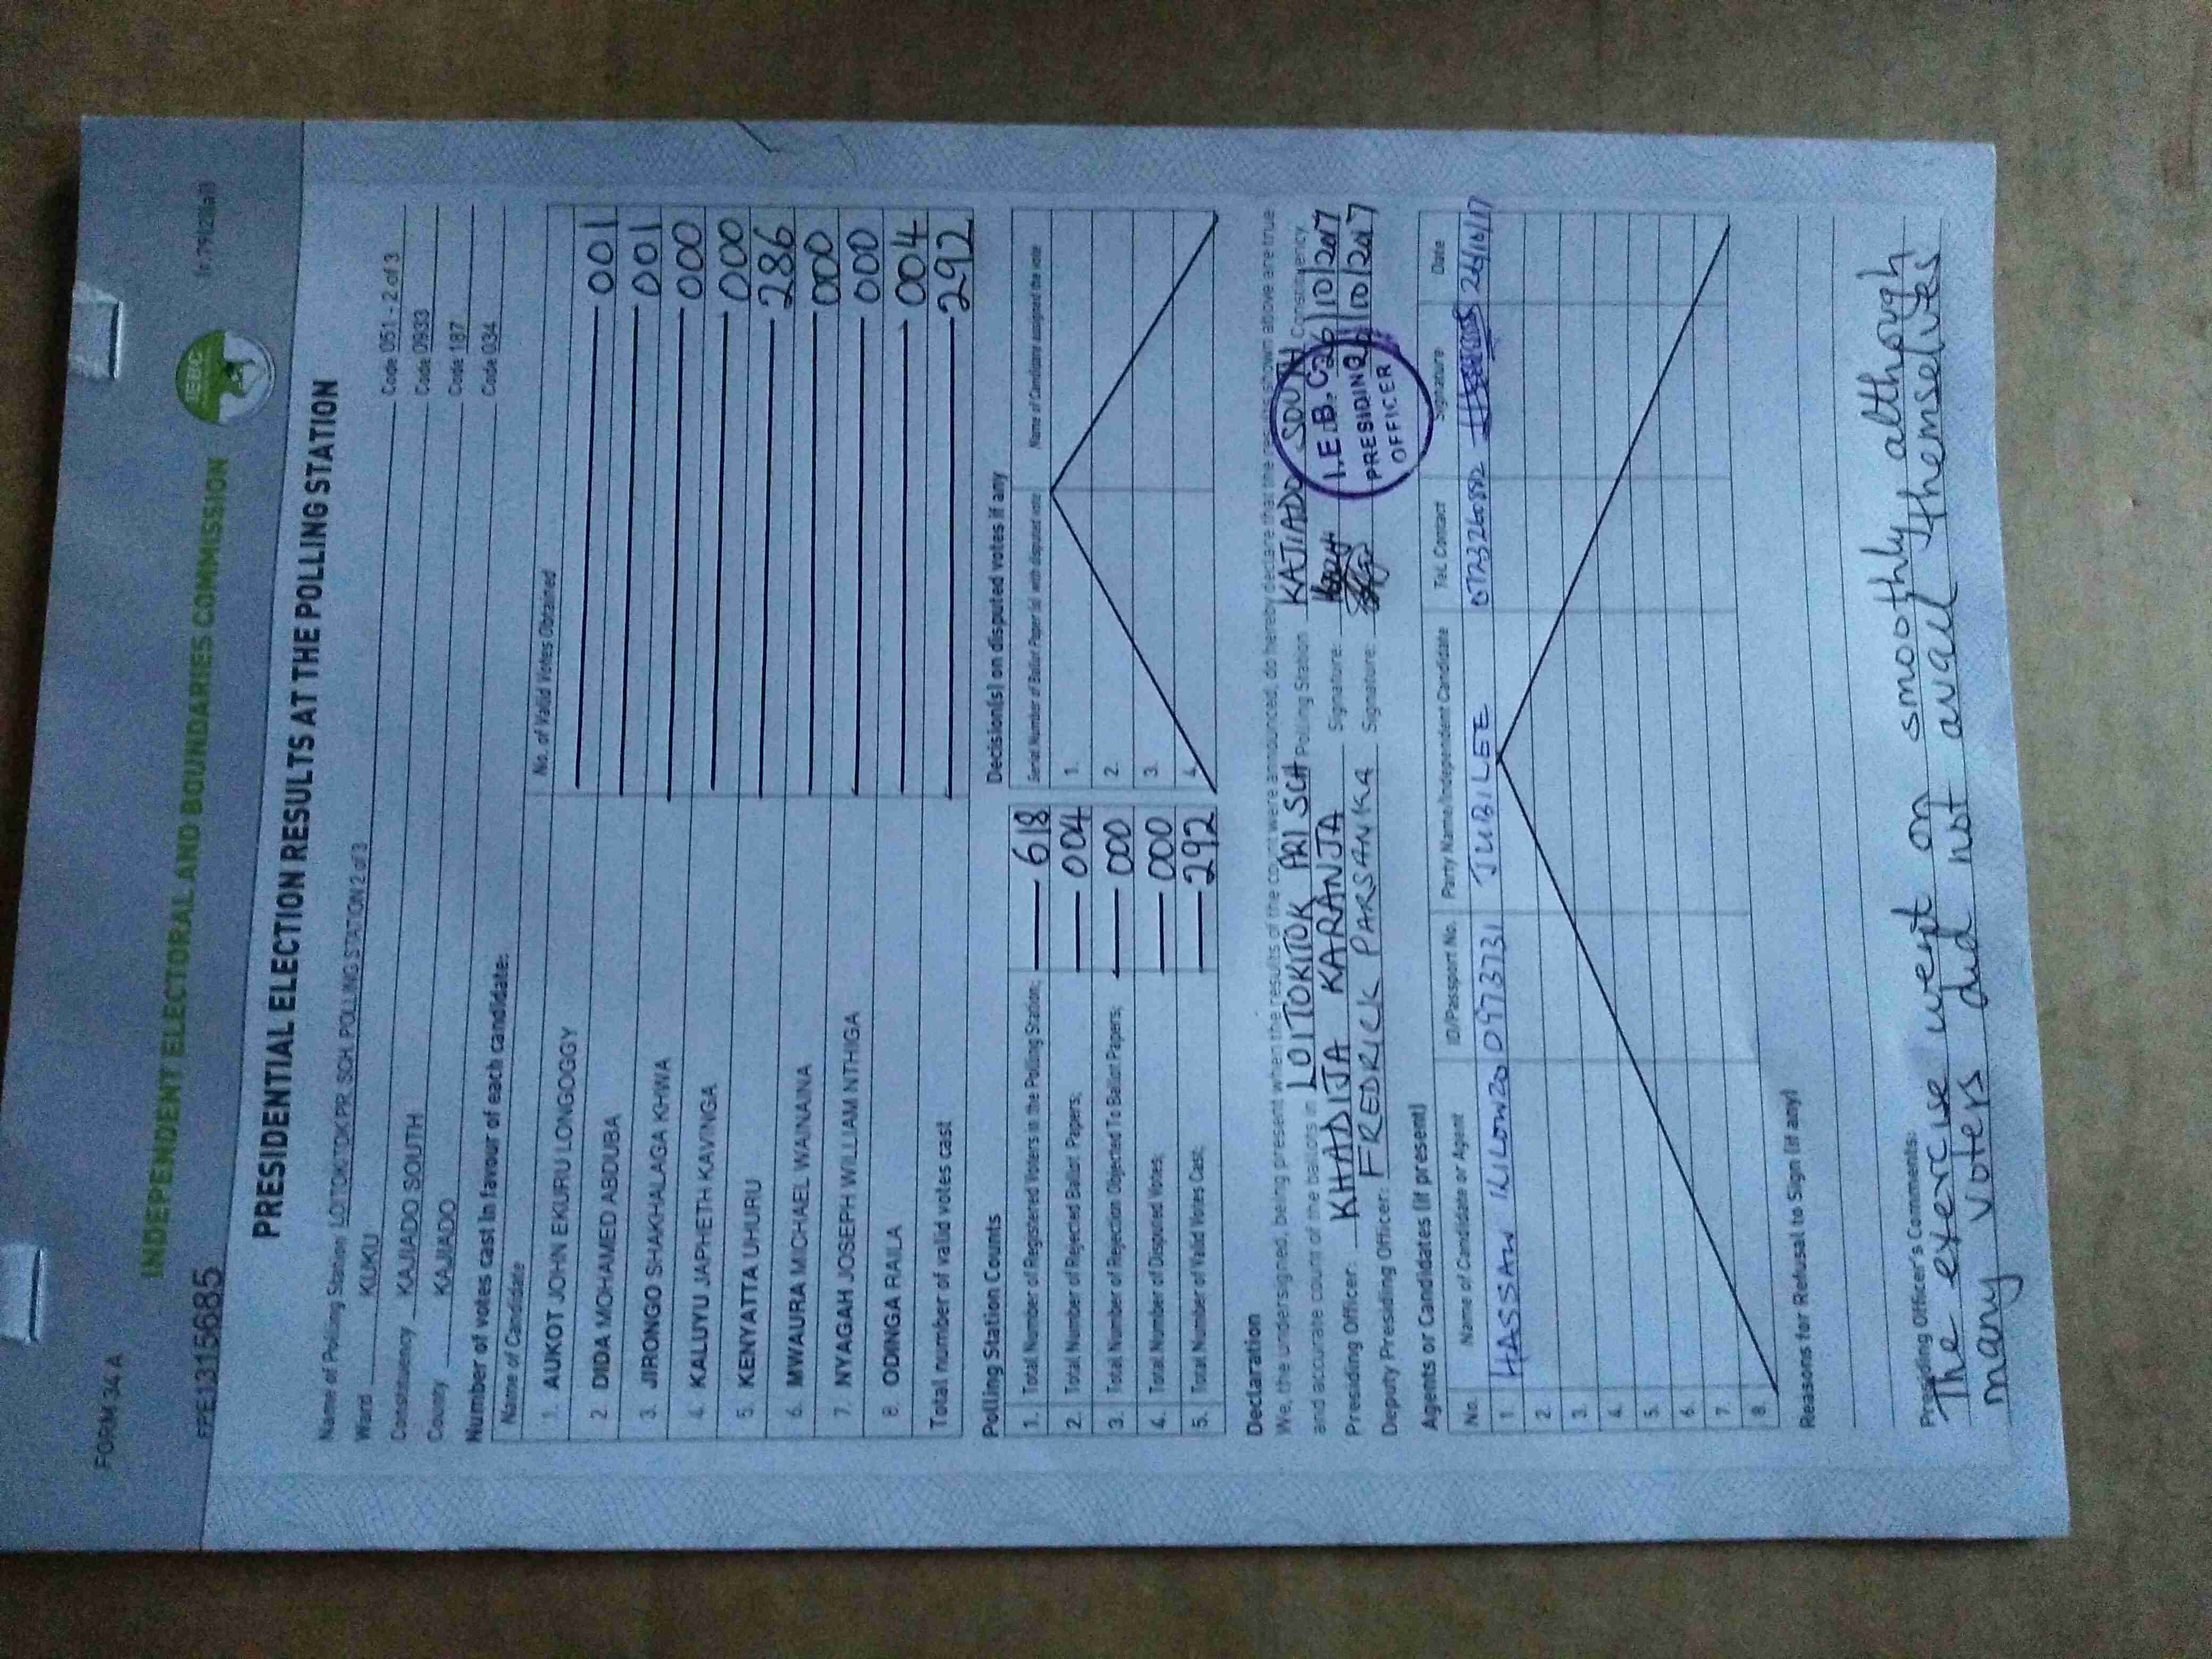 FORM 34 A
INDEPENDENT ELECTORAL AND BOUNDARIES COMMISSION
IEBC
PRESIDENTIAL ELECTION RESULTS AT THE POLLING STATION
Name of Polling Station LOITOKITOK PR. SCH. POLLING STATION 2 of 3 Code 051 - 2 of 3
Ward KUKU Code 0933
Constituency KAJIADO SOUTH Code 187
County KAJIADO Code 034
Number of votes cast in favour of each candidate:
Name of Candidate No. of Valid Votes Obtained
1. AUKOT JOHN EKURU LONGOGGY 001
2. DIDA MOHAMED ABDUBA 001
3. JIRONGO SHAKHALAGA KHWA 000
4. KALUYU JAPHETH KAVINGA 000
5. KENYATTA UHURU 286
6. MWAURA MICHAEL WAINAINA 000
7. NYAGAH JOSEPH WILLIAM NTHIGA 000
8. ODINGA RAILA 004
Total number of valid votes cast 292
Polling Station Counts
1. Total Number of Registered Voters in the Polling Station; 618
2. Total Number of Rejected Ballot Papers; 004
3. Total Number of Rejection Objected To Ballot Papers; 000
4. Total Number of Disputed Votes; 000
5. Total Number of Valid Votes Cast; 292
Decision(s) on disputed votes if any
Serial Number of Ballot Paper (s) with disputed vote Name of Candidate assigned the vote
1.
2.
3.
4.
Declaration
We, the undersigned, being present when the results of the count were announced, do hereby declare that the results shown above are true
and accurate count of the ballots in LOITOKITOK PRI SCH Polling Station KAJIADO SOUTH Constituency.
Presiding Officer: KHADIJA KARANJA Signature: 26/10/2017
Deputy Presiding Officer: FREDRICK PARSANKA Signature: 10/2017
I.E.B.C
PRESIDING
OFFICER
Agents or Candidates (if present)
No. Name of Candidate or Agent ID/Passport No. Party Name/Independent Candidate Tel. Contact Signature Date
1. HASSAN JUBILEE
2.
3.
4.
5.
6.
7.
8.
Reasons for Refusal to Sign (if any)
Presiding Officer's Comments:
The exercise went on smoothly although
many voters did not avail themselves